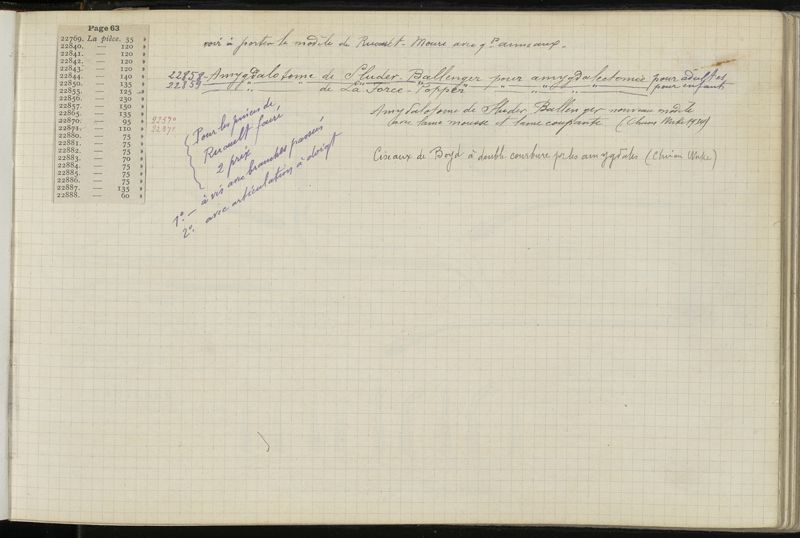 Page 63
22769. La pièce. 35 »
22840. — 120 »
22841. — 120 »
22842. — 120 »
22843. — 120 »
22844. — 140 »
22850. — 135 »
22855. — 125 »
22856. — 230 »
22857. — 150 »
22865. — 135 »
22870. — 95 »
22871. — 110 »
22880. — 75 »
22881. — 75 »
22882. — 75 »
22883. — 70 »
22884. — 75 »
22885. — 75 »
22886. — 75 »
22887. — 135 »
22888. — 60 »
22871
voir à porter le modèle de - Moure avec gds anneaux.
22858 - Amygdalotome de Sluder Ballenger pour amygdalectomie pour adultes
22859 " " de La Force - Popper " " " " pour enfants
Amygdalotome de Sluder Ballenger nouveau modèle
avec lame mousse et lame coupante
Ciseaux de Boyd à double courbure pr les amygdales
Pour les pinces de
Ruault faire
2 prix
1º. — à vis avec branches passées
2º. avec articulation à doigt